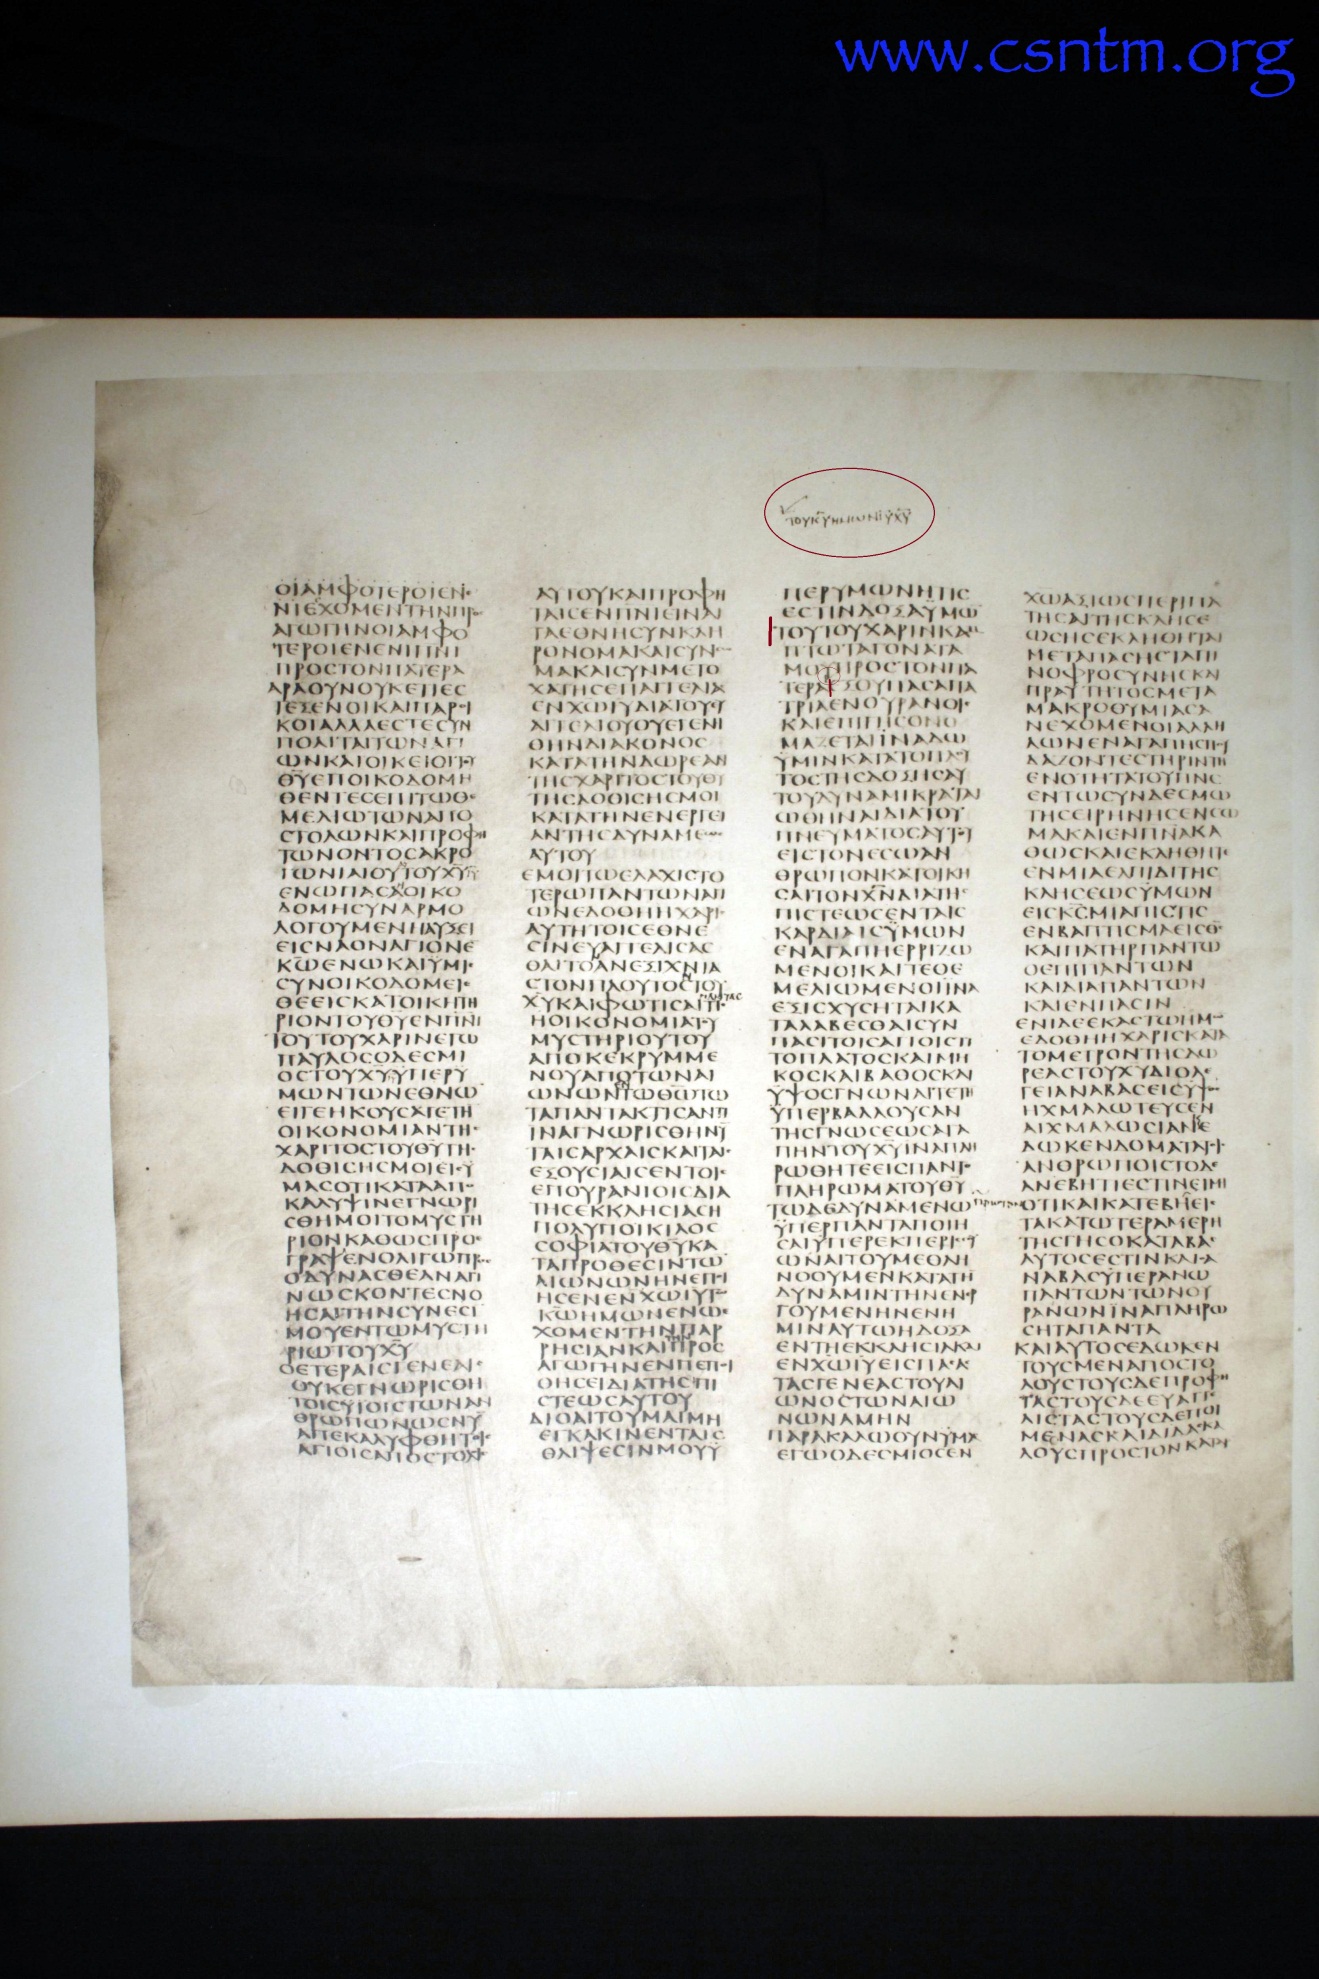 www.csntm.org
ΤΟΥΚΥΗΜΩΝΙΥΧΥ
ΟΙΑΜΦΟΤΕΡΟΙΕΝΕ
ΝΙΕΧΟΜΕΝΤΗΝΠΡ
ΑΓΩΓΗΝΟΙΑΜΦΟ
ΤΕΡΟΙΕΝΕΝΙΠΝΙ
ΠΡΟΣΤΟΝΠΑΤΕΡΑ
ΑΡΑΟΥΝΟΥΚΕΤΙΕΣ
ΤΕΞΕΝΟΙΚΑΙΠΑΡΟΙ
ΚΟΙΑΛΛΑΕΣΤΕΣΥΝ
ΠΟΛΙΤΑΙΤΩΝΑΓΙ
ΩΝΚΑΙΟΙΚΕΙΟΙΤΟΥ
ΘΥΕΠΟΙΚΟΔΟΜΗ
ΘΕΝΤΕΣΕΠΙΤΩΘΕ
ΜΕΛΙΩΤΩΝΑΠΟ
ΣΤΟΛΩΝΚΑΙΠΡΟΦΗ
ΤΩΝΟΝΤΟΣΑΚΡΟ
ΓΩΝΙΑΙΟΥΤΟΥΧΥ
ΕΝΩΠΑΣΑΟΙΚΟ
ΔΟΜΗΣΥΝΑΡΜΟ
ΛΟΓΟΥΜΕΝΗΑΥΞΕΙ
ΕΙΣΝΑΟΝΑΓΙΟΝΕ
ΚΩΕΝΩΚΑΙΥΜΙΣ
ΣΥΝΟΙΚΟΔΟΜΕΙΣ
ΘΕΕΙΣΚΑΤΟΙΚΗΤΗ
ΡΙΟΝΤΟΥΘΥΕΝΠΝΙ
ΤΟΥΤΟΥΧΑΡΙΝΕΓΩ
ΠΑΥΛΟΣΟΔΕΣΜΙ
ΟΣΤΟΥΧΥΥΠΕΡΥ
ΜΩΝΤΩΝΕΘΝΩ
ΕΙΓΕΗΚΟΥΣΑΤΕΤΗ
ΟΙΚΟΝΟΜΙΑΝΤΗΣ
ΧΑΡΙΤΟΣΤΟΥΘΥΤΗΣ
ΔΟΘΙΣΗΣΜΟΙΕΙΣΥ
ΜΑΣΟΤΙΚΑΤΑΑΠΟ
ΚΑΛΥΨΙΝΕΓΝΩΡΙ
ΣΘΗΜΟΙΤΟΜΥΣΤΗ
ΡΙΟΝΚΑΘΩΣΠΡΟΕ
ΓΡΑΨΕΝΟΛΙΓΩΠΡΟΣ
ΟΔΥΝΑΣΘΕΑΝΑΓΙ
ΝΩΣΚΟΝΤΕΣΝΟ
ΗΣΑΙΤΗΝΣΥΝΕΣΙ
ΜΟΥΕΝΤΩΜΥΣΤΗ
ΡΙΩΤΟΥΧΥ
ΟΕΤΕΡΑΙΣΓΕΝΕΑΙΣ
ΟΥΚΕΓΝΩΡΙΣΘΗ
ΤΟΙΣΥΙΟΙΣΤΩΝΑΝ
ΘΡΩΠΩΝΩΣΝΥ
ΑΠΕΚΑΛΥΦΘΗΤΟΙΣ
ΑΓΙΟΙΣΑΠΟΣΤΟΛΟΙΣ
ΑΥΤΟΥΚΑΙΠΡΟΦΗ
ΤΑΙΣΕΝΠΝΙΕΙΝΑΙ
ΤΑΕΘΝΗΣΥΝΚΛΗ
ΡΟΝΟΜΑΚΑΙΣΥΝΣΩ
ΜΑΚΑΙΣΥΝΜΕΤΟ
ΧΑΤΗΣΕΠΑΓΓΕΛΙΑΣ
ΕΝΧΩΙΥΔΙΑΤΟΥΕΥ
ΑΓΓΕΛΙΟΥΟΥΕΓΕΝΗ
ΘΗΝΔΙΑΚΟΝΟΣ
ΚΑΤΑΤΗΝΔΩΡΕΑΝ
ΤΗΣΧΑΡΙΤΟΣΤΟΥΘΥ
ΤΗΣΔΟΘΙΣΗΣΜΟΙ
ΚΑΤΑΤΗΝΕΝΕΡΓΕΙ
ΑΝΤΗΣΔΥΝΑΜΕΩΣ
ΑΥΤΟΥ
ΕΜΟΙΤΩΕΛΑΧΙΣΤΟ
ΤΕΡΩΠΑΝΤΩΝΑΓΙ
ΩΝΕΔΟΘΗΗΧΑΡΙΣ
ΑΥΤΗΤΟΙΣΕΘΝΕ
ΣΙΝΕΥΑΓΓΕΛΙΣΑΣ
ΘΑΙΤΟΑΝΕΞΙΧΝΙΑ
ΣΤΟΝΠΛΟΥΤΟΣΤΟΥ
ΧΥΚΑΙΦΩΤΙΣΑΙΤΙΣ
ΠΑΝΤΑΣ
ΗΟΙΚΟΝΟΜΙΑΤΟΥ
ΜΥΣΤΗΡΙΟΥΤΟΥ
ΑΠΟΚΕΚΡΥΜΜΕ
ΝΟΥΑΠΟΤΩΝΑΙ
ΩΝΩΝΤΩΘΩΤΩ
ΤΑΠΑΝΤΑΚΤΙΣΑΝΤΙ
ΙΝΑΓΝΩΡΙΣΘΗΝΥ
ΤΑΙΣΑΡΧΑΙΣΚΑΙΤΑΙΣ
ΕΞΟΥΣΙΑΙΣΕΝΤΟΙΣ
ΕΠΟΥΡΑΝΙΟΙΣΔΙΑ
ΤΗΣΕΚΚΛΗΣΙΑΣΗ
ΠΟΛΥΠΟΙΚΙΛΟΣ
ΣΟΦΙΑΤΟΥΘΥΚΑ
ΤΑΠΡΟΘΕΣΙΝΤΩ
ΑΙΩΝΩΝΗΝΕΠΟΙ
ΗΣΕΝΕΝΧΩΙΥΤΩ
ΚΩΗΜΩΝΕΝΩΕ
ΧΟΜΕΝΤΗΝΠΑΡ
ΡΗΣΙΑΝΚΑΙΠΡΟΣ
ΑΓΩΓΗΝΕΝΠΕΠΟΙ
ΘΗΣΕΙΔΙΑΤΗΣΠΙ
ΣΤΕΩΣΑΥΤΟΥ
ΔΙΟΑΙΤΟΥΜΑΙΜΗ
ΕΓΚΑΚΙΝΕΝΤΑΙΣ
ΘΛΙΨΕΣΙΝΜΟΥΥ
ΠΕΡΥΜΩΝΗΤΙΣ
ΕΣΤΙΝΔΟΞΑΥΜΩ
ΤΟΥΤΟΥΧΑΡΙΝΚΑΜ
ΠΤΩΤΑΓΟΝΑΤΑ
ΜΟΥΠΡΟΣΤΟΝΠΑ
ΤΕΡΑΕΞΟΥΠΑΣΑΠΑ
ΤΡΙΑΕΝΟΥΡΑΝΟΙΣ
ΚΑΙΕΠΙΓΗΣΟΝΟ
ΜΑΖΕΤΑΙΙΝΑΔΩ
ΥΜΙΝΚΑΤΑΤΟΠΛΟΥ
ΤΟΣΤΗΣΔΟΞΗΣΑΥ
ΤΟΥΔΥΝΑΜΙΚΡΑΤΑΙ
ΩΘΗΝΑΙΔΙΑΤΟΥ
ΠΝΕΥΜΑΤΟΣΑΥΤΟΥ
ΕΙΣΤΟΝΕΣΩΑΝ
ΘΡΩΠΟΝΚΑΤΟΙΚΗ
ΣΑΙΤΟΝΧΝΔΙΑΤΗΣ
ΠΙΣΤΕΩΣΕΝΤΑΙΣ
ΚΑΡΔΙΑΙΣΥΜΩΝ
ΕΝΑΓΑΠΗΕΡΡΙΖΩ
ΜΕΝΟΙΚΑΙΤΕΘΕ
ΜΕΛΙΩΜΕΝΟΙΙΝΑ
ΕΞΙΣΧΥΣΗΤΑΙΚΑ
ΤΑΛΑΒΕΣΘΑΙΣΥΝ
ΠΑΣΙΤΟΙΣΑΓΙΟΙΣΤΙ
ΤΟΠΛΑΤΟΣΚΑΙΜΗ
ΚΟΣΚΑΙΒΑΘΟΣΚΑΙ
ΥΨΟΣΓΝΩΝΑΙΤΕΤΗ
ΥΠΕΡΒΑΛΛΟΥΣΑΝ
ΤΗΣΓΝΩΣΕΩΣΑΓΑ
ΠΗΝΤΟΥΧΥΙΝΑΠΛΗ
ΡΩΘΗΤΕΕΙΣΠΑΝΤΟ
ΠΛΗΡΩΜΑΤΟΥΘΥ
ΤΩΔΕΔΥΝΑΜΕΝΩ
ΥΠΕΡΠΑΝΤΑΠΟΙΗ
ΣΑΙΥΠΕΡΕΚΠΕΡΙΣΣΟΥ
ΩΝΑΙΤΟΥΜΕΘΑΗ
ΝΟΟΥΜΕΝΚΑΤΑΤΗ
ΔΥΝΑΜΙΝΤΗΝΕΝΕΡ
ΓΟΥΜΕΝΗΝΕΝΗ
ΜΙΝΑΥΤΩΗΔΟΞΑ
ΕΝΤΗΕΚΚΛΗΣΙΑΚΑΙ
ΕΝΧΩΙΥΕΙΣΠΑΣΑΣ
ΤΑΣΓΕΝΕΑΣΤΟΥΑΙ
ΩΝΟΣΤΩΝΑΙΩ
ΝΩΝΑΜΗΝ
ΠΑΡΑΚΑΛΩΟΥΝΥΜΑΣ
ΕΓΩΟΔΕΣΜΙΟΣΕΝ
ΧΩΑΞΙΩΣΠΕΡΙΠΑ
ΤΗΣΑΙΤΗΣΚΛΗΣΕ
ΩΣΗΣΕΚΛΗΘΗΤΑΙ
ΜΕΤΑΠΑΣΗΣΤΑΠΙ
ΝΟΦΡΟΣΥΝΗΣΚΑΙ
ΠΡΑΥΤΗΤΟΣΜΕΤΑ
ΜΑΚΡΟΘΥΜΙΑΣΑ
ΝΕΧΟΜΕΝΟΙΑΛΛΗ
ΛΩΝΕΝΑΓΑΠΗΣΠΟΥ
ΔΑΖΟΝΤΕΣΤΗΡΙΝΤΗ
ΕΝΟΤΗΤΑΤΟΥΠΝΣ
ΕΝΤΩΣΥΝΔΕΣΜΩ
ΤΗΣΕΙΡΗΝΗΣΕΝΣΩ
ΜΑΚΑΙΕΝΠΝΑΚΑ
ΘΩΣΚΑΙΕΚΛΗΘΗΤΕ
ΕΝΜΙΑΕΛΠΙΔΙΤΗΣ
ΚΛΗΣΕΩΣΥΜΩΝ
ΕΙΣΚΣΜΙΑΠΙΣΤΙΣ
ΕΝΒΑΠΤΙΣΜΑΕΙΣΘΣ
ΚΑΙΠΑΤΗΡΠΑΝΤΩ
ΟΕΠΙΠΑΝΤΩΝ
ΚΑΙΔΙΑΠΑΝΤΩΝ
ΚΑΙΕΝΠΑΣΙΝ
ΕΝΙΔΕΕΚΑΣΤΩΗΜΩ
ΕΔΟΘΗΗΧΑΡΙΣΚΑΤΑ
ΤΟΜΕΤΡΟΝΤΗΣΔΩ
ΡΕΑΣΤΟΥΧΥΔΙΟΛΕ
ΓΕΙΑΝΑΒΑΣΕΙΣΥΨΟΣ
ΗΧΜΑΛΩΤΕΥΣΕΝ
ΑΙΧΜΑΛΩΣΙΑΝΕ
ΔΩΚΕΝΔΟΜΑΤΑΤΟΙΣ
ΑΝΘΡΩΠΟΙΣΤΟΔΕ
ΑΝΕΒΗΤΙΕΣΤΙΝΕΙΜΗ
ΟΤΙΚΑΙΚΑΤΕΒΗΕΙΣ
ΤΑΚΑΤΩΤΕΡΑΜΕΡΗ
ΤΗΣΓΗΣΟΚΑΤΑΒΑΣ
ΑΥΤΟΣΕΣΤΙΝΚΑΙΟΑ
ΝΑΒΑΣΥΠΕΡΑΝΩ
ΠΑΝΤΩΝΤΩΝΟΥ
ΡΑΝΩΝΙΝΑΠΛΗΡΩ
ΣΗΤΑΠΑΝΤΑ
ΚΑΙΑΥΤΟΣΕΔΩΚΕΝ
ΤΟΥΣΜΕΝΑΠΟΣΤΟ
ΛΟΥΣΤΟΥΣΔΕΠΡΟΦΗ
ΤΑΣΤΟΥΣΔΕΕΥΑΓΓΕ
ΛΙΣΤΑΣΤΟΥΣΔΕΠΟΙ
ΜΕΝΑΣΚΑΙΔΙΔΑΣΚΑ
ΛΟΥΣΠΡΟΣΤΟΝΚΑΤΑΡ